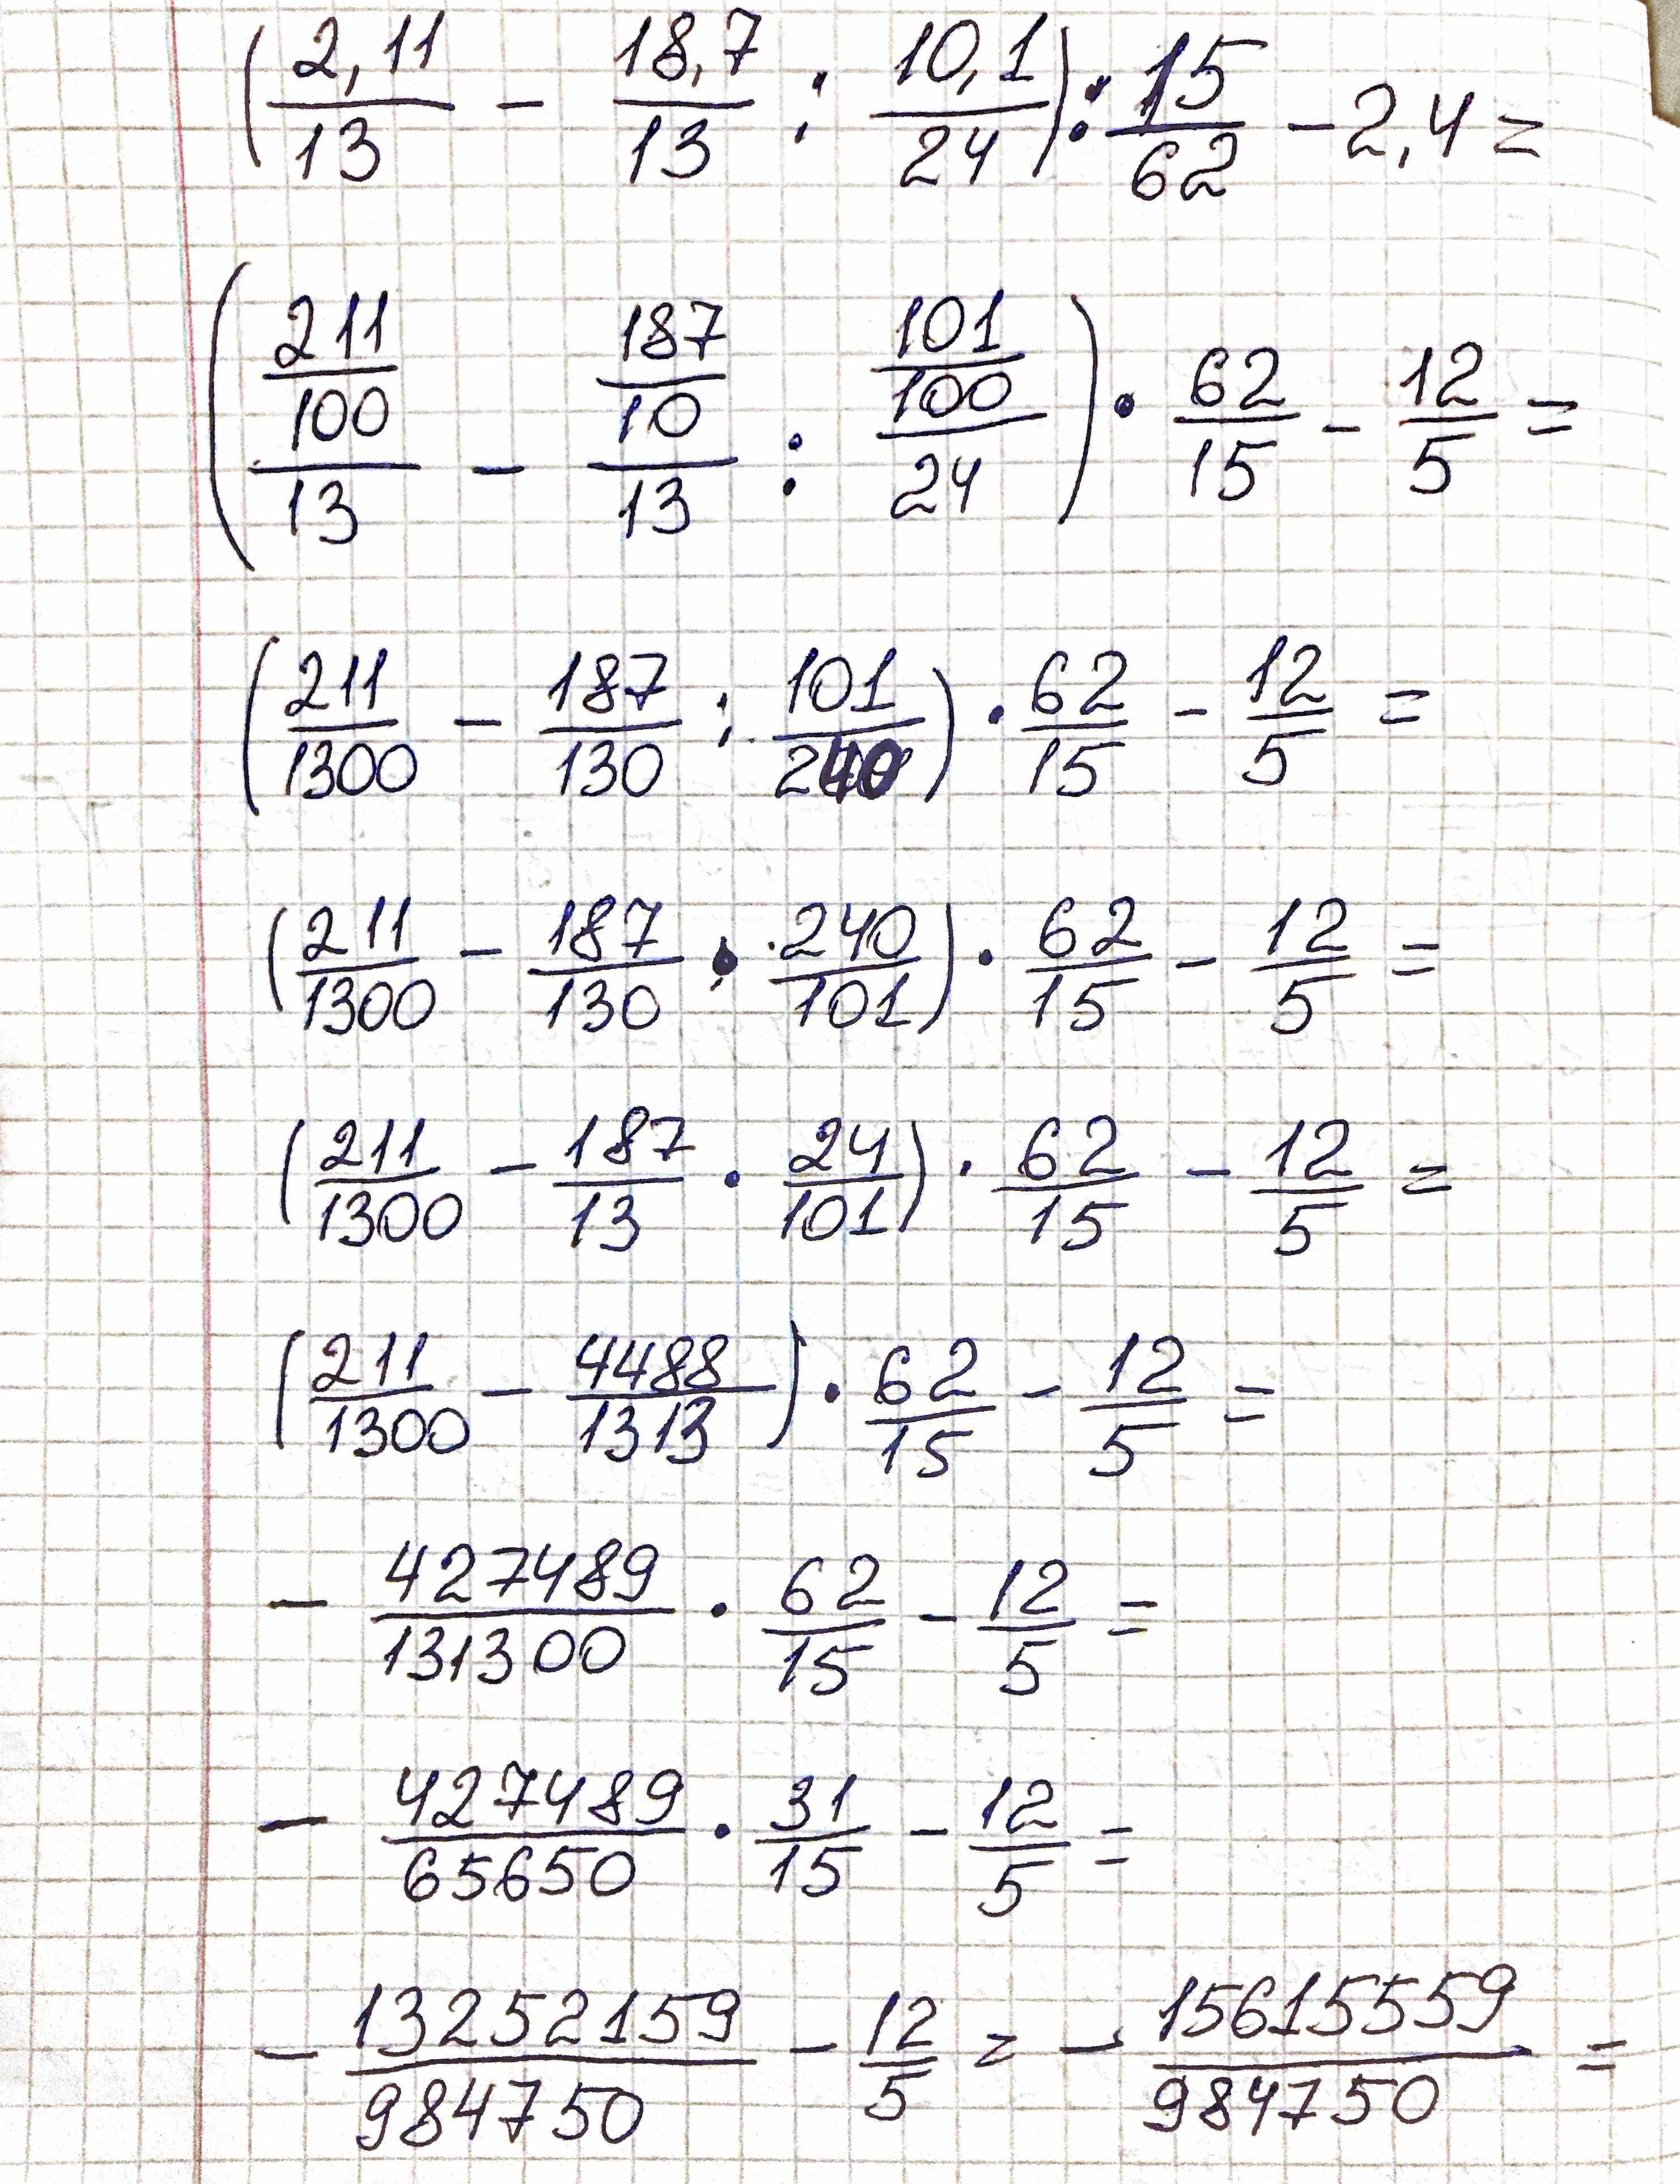 (2,11/13 - 18,7/13 : 10,1/24) : 15/62 - 2,4 =
((211/100)/13 - (187/10)/13 : (101/100)/24) · 62/15 - 12/5 =
(211/1300 - 187/130 : 101/240) · 62/15 - 12/5 =
(211/1300 - 187/130 · 240/101) · 62/15 - 12/5 =
(211/1300 - 187/13 · 24/101) · 62/15 - 12/5 =
(211/1300 - 4488/1313) · 62/15 - 12/5 =
- 427489/131300 · 62/15 - 12/5 =
- 427489/65650 · 31/15 - 12/5 =
- 13252159/984750 - 12/5 = - 15615559/984750 =